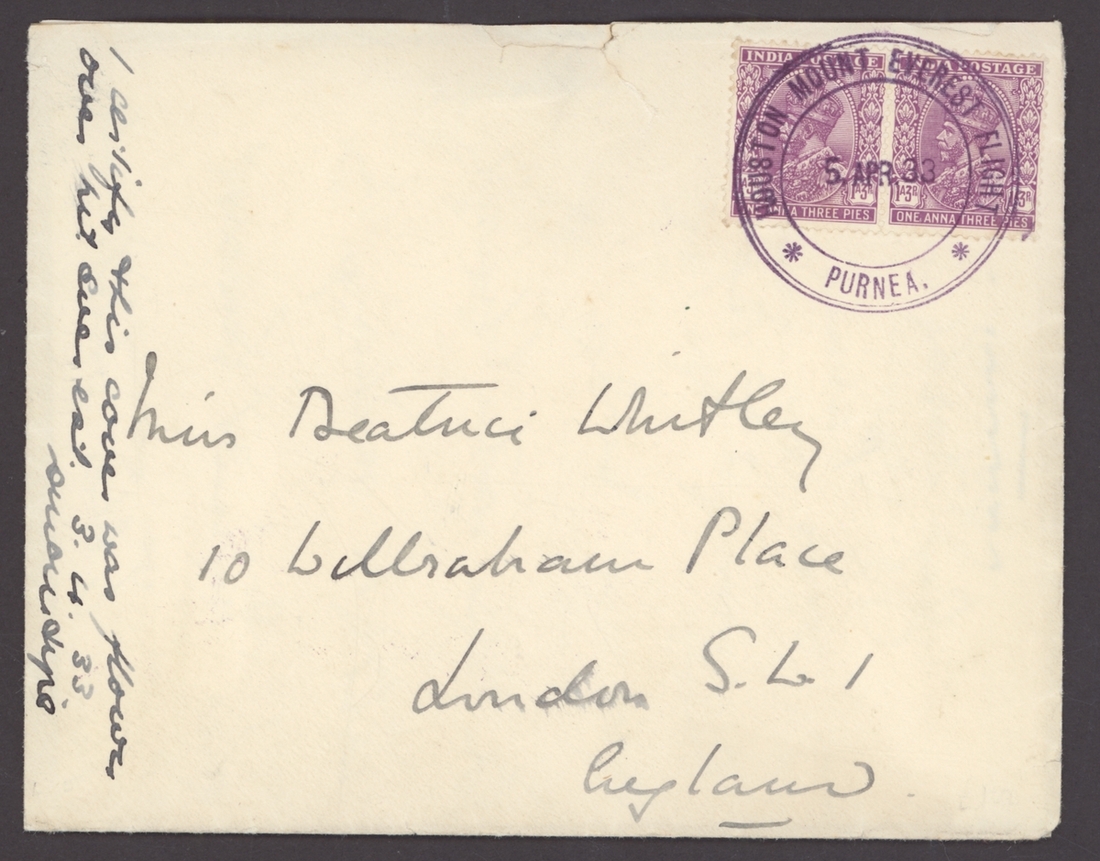 I certify this cover was flown
over Mt Everest. 3.4.33
INDIA POSTAGE
INDIA POSTAGE
1A3P
1A3P
1A3P
ONE ANNA THREE PIES
ONE ANNA THREE PIES
HOUSTON MOUNT EVEREST FLIGHT
5.APR.33
* PURNEA. *
Miss Beatrice Whitley
10 Wilbraham Place
London S.W 1
England